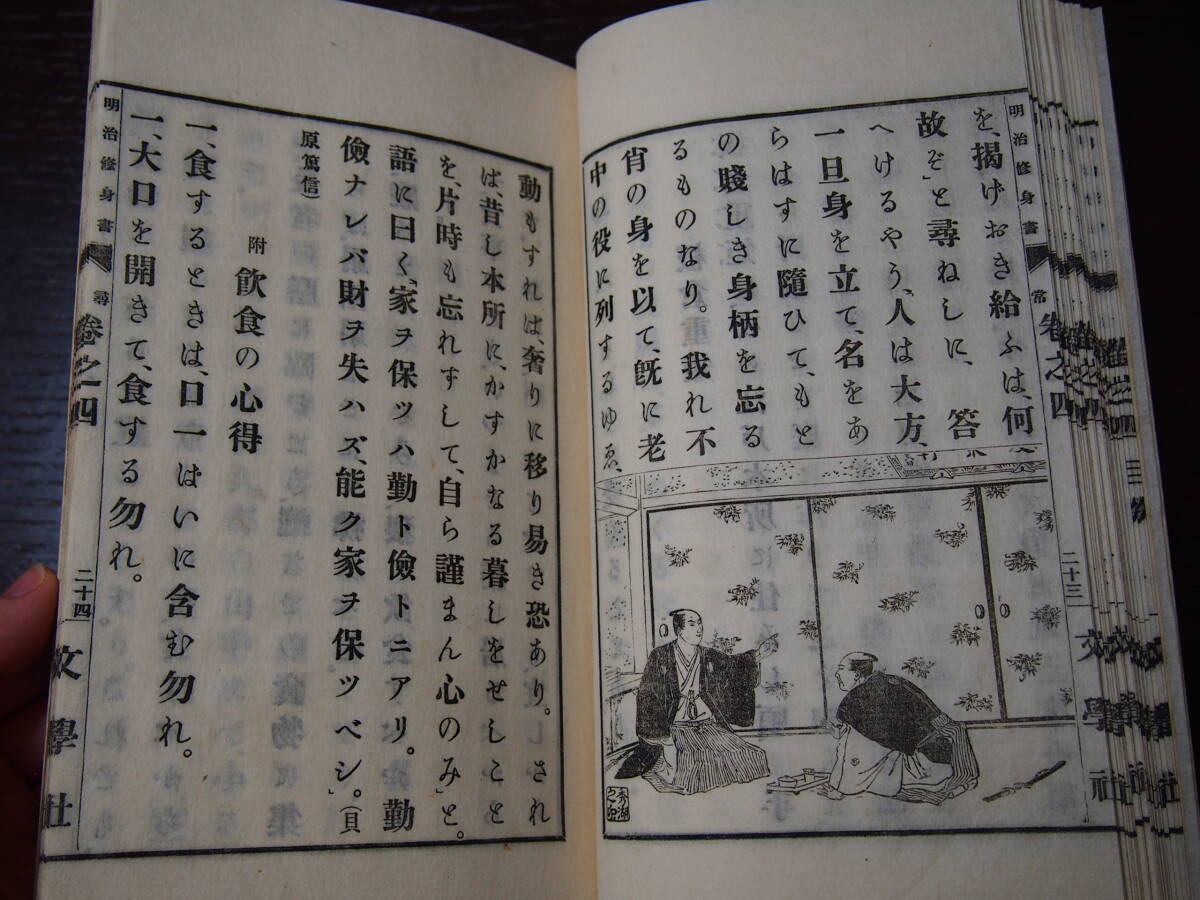 を、揭げおき給ふは、何
故ぞ」と尋ねしに、答
へけるやう、「人は大方、
一旦身を立て、名をあ
らはすに隨ひて、もと
の賤しき身柄を忘る
るものなり。我れ不
肖の身を以て、旣に老
中の役に列するゆゑ、
動もすれは、奢りに移り易き恐あり。され
ば、昔し本所に、かすかなる暮しをせしこと
を、片時も忘れすして、自ら謹まん心のみ」と。
語に曰く、「家ヲ保ツハ勤ト儉トニアリ。勤
儉ナレバ財ヲ失ハズ、能ク家ヲ保ツベシ。」(貝
原篤信)
附 飮食の心得
一、食するときは、口一ぱいに含む勿れ。
一、大口を開きて、食する勿れ。
明治修身書 常 卷之四 二十三 文學社
明治修身書 尋 卷之四 二十四 文學社